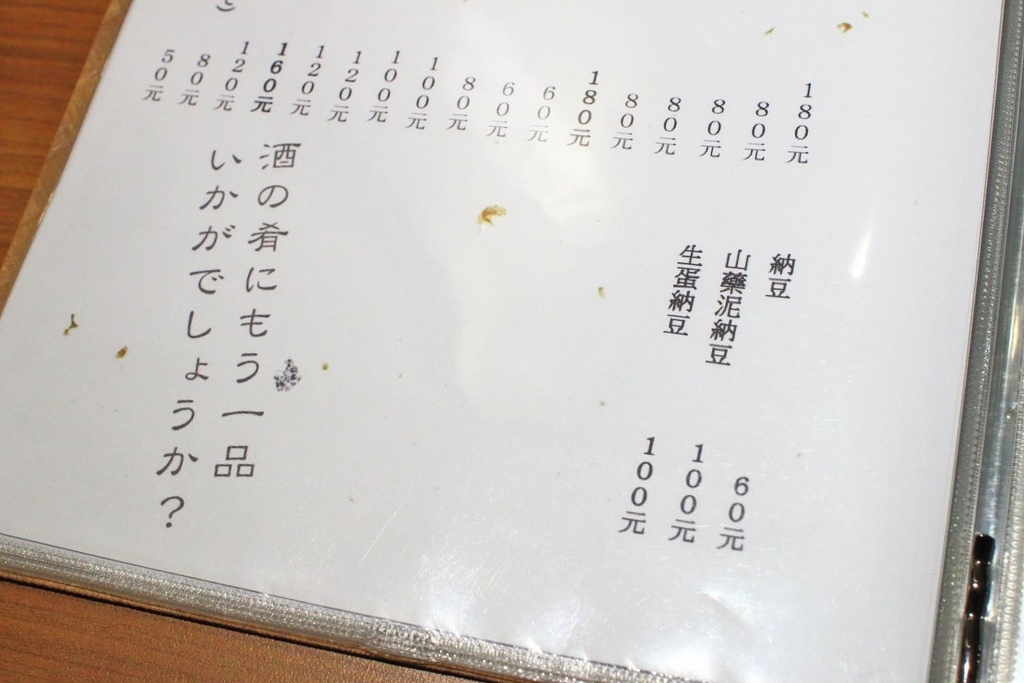 180元
80元
80元
80元
80元
180元
60元
60元
80元
100元
100元
120元
120元
160元
120元
80元
50元
納豆 60元
山藥泥納豆 100元
生蛋納豆 100元
酒の肴にもう一品
いかがでしょうか？